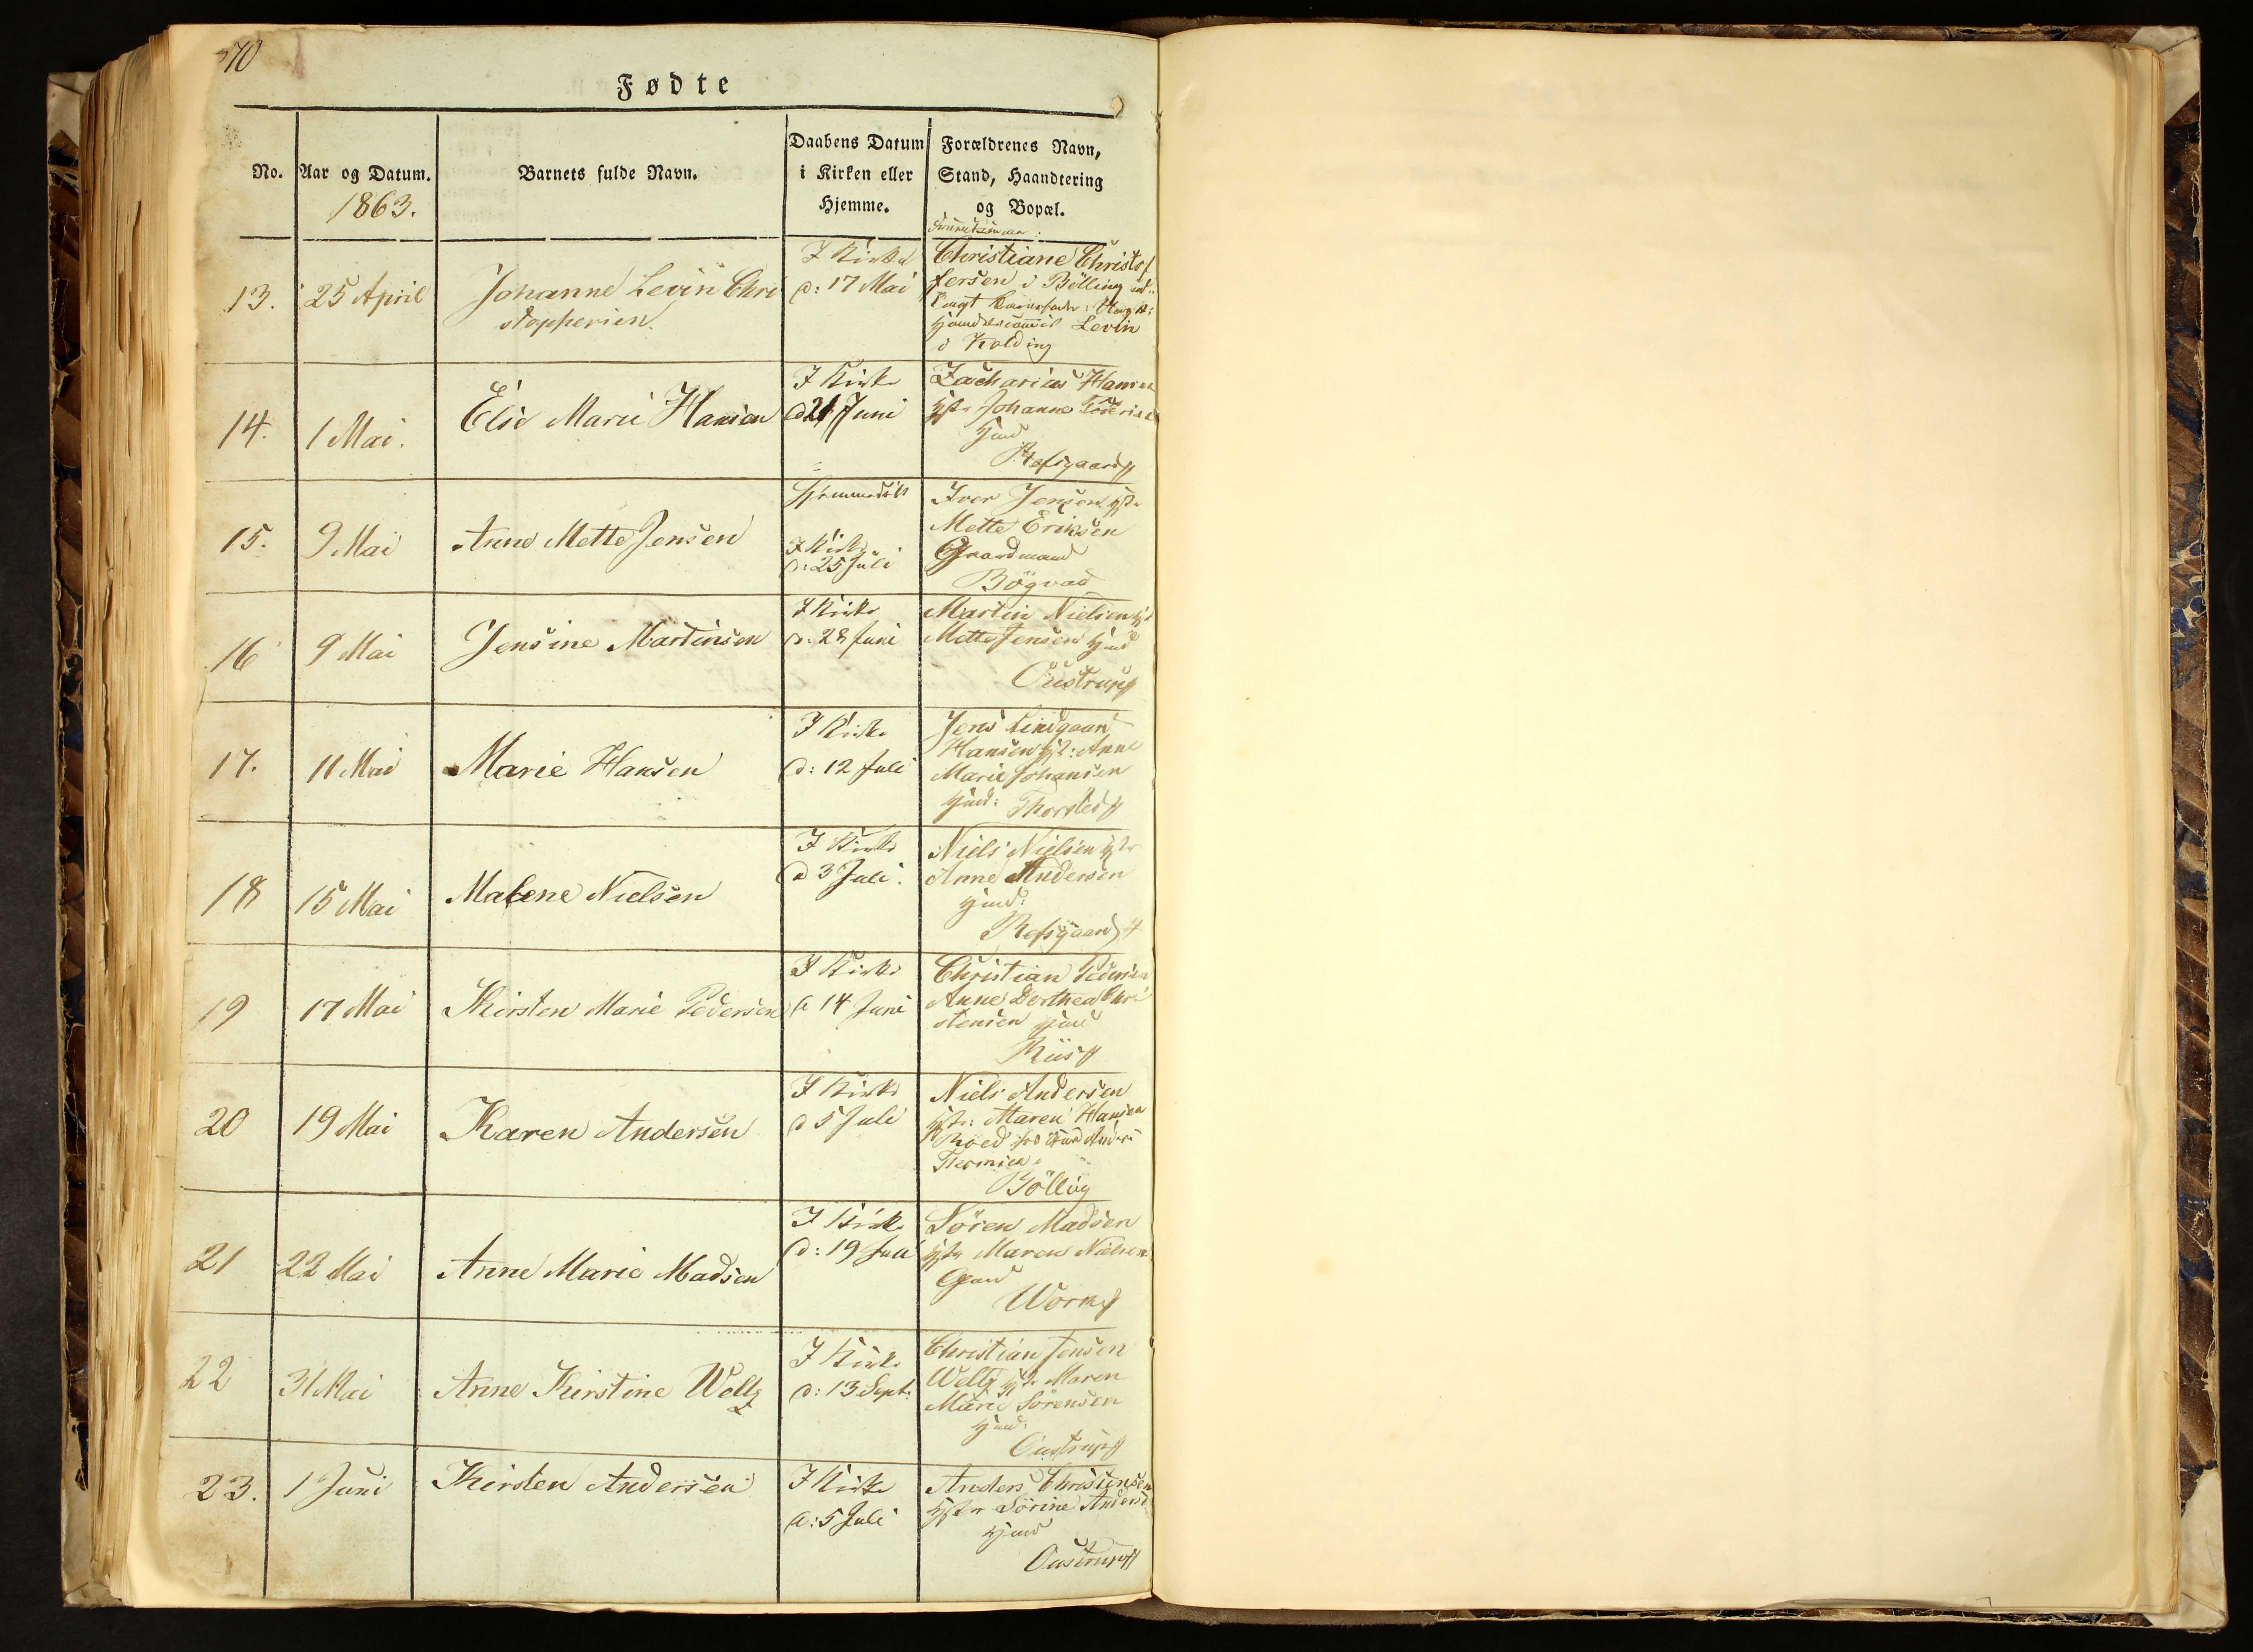 70
Fødte
No.
Aar og Datum.
1863.
Barnets fulde Navn.
Daabens Datum
i Kirken eller
Hjemme.
Forældrenes Navn,
Stand, Haandtering
og Bopæl.
13.
25 April
Johanne Levin Chri
stoffersen.
I Kirke
d: 17 Mai
Christiane Christof
fersen i Bölling
Levin
i Kolding
14.
1 Mai.
Else Marie Hansen
I Kirke
d 21 Juni
Zacharias Hansen
Hst. Johanne
Hmd
Refsgaard
15.
9 Mai
Anne Mette Jensen
Hjemmedöbt
I Kirke
d: 25 Juli
Iver Jensen Hst.
Mette Eriksen
Gaardmand
Bögvad
16
9 Mai
Jensine Martinsen
I Kirke
d. 28 Juni
Martin Nielsen Hst
Mette Jensen Hmd
Oustrup
17.
11 Mai
Marie Hansen
I Kirke
d: 12 Juli
Jens Lindgaard
Hansen Hst: Anne
Marie Johansen
Hmd: Thorsted
18
15 Mai
Malene Nielsen
I Kirke
d 3 Juli.
Niels Nielsen Hst
Anne Andersen
Hmd:
Refsgaard
19
17 Mai
Kirsten Marie Pedersen
I Kirke
d 14 Juni
Christian Pedersen
Anne Dorthea Chri
stensen Hmd
Riis
20
19 Mai
Karen Andersen
I Kirke
d 5 Juli
Niels Andersen
Hst: Maren Hansen
Bölling
21
22 Mai
Anne Marie Madsen
I Kirke
d: 19 Juli
Sören Madsen
Hst Maren Nielsen
Gmd
Work
22
31 Mai
Anne Kirstine Weltz
I Kirke
d: 13 Sept:
Christian Jensen
Weltz Hst. Maren
Marie Sörensen
Hmd:
Oustrup
23.
1 Juni
Kirsten Andersen
I Kirke
d: 5 Juli
Anders Christensen
Hst Sörine Anders
Hmd
Oustrup